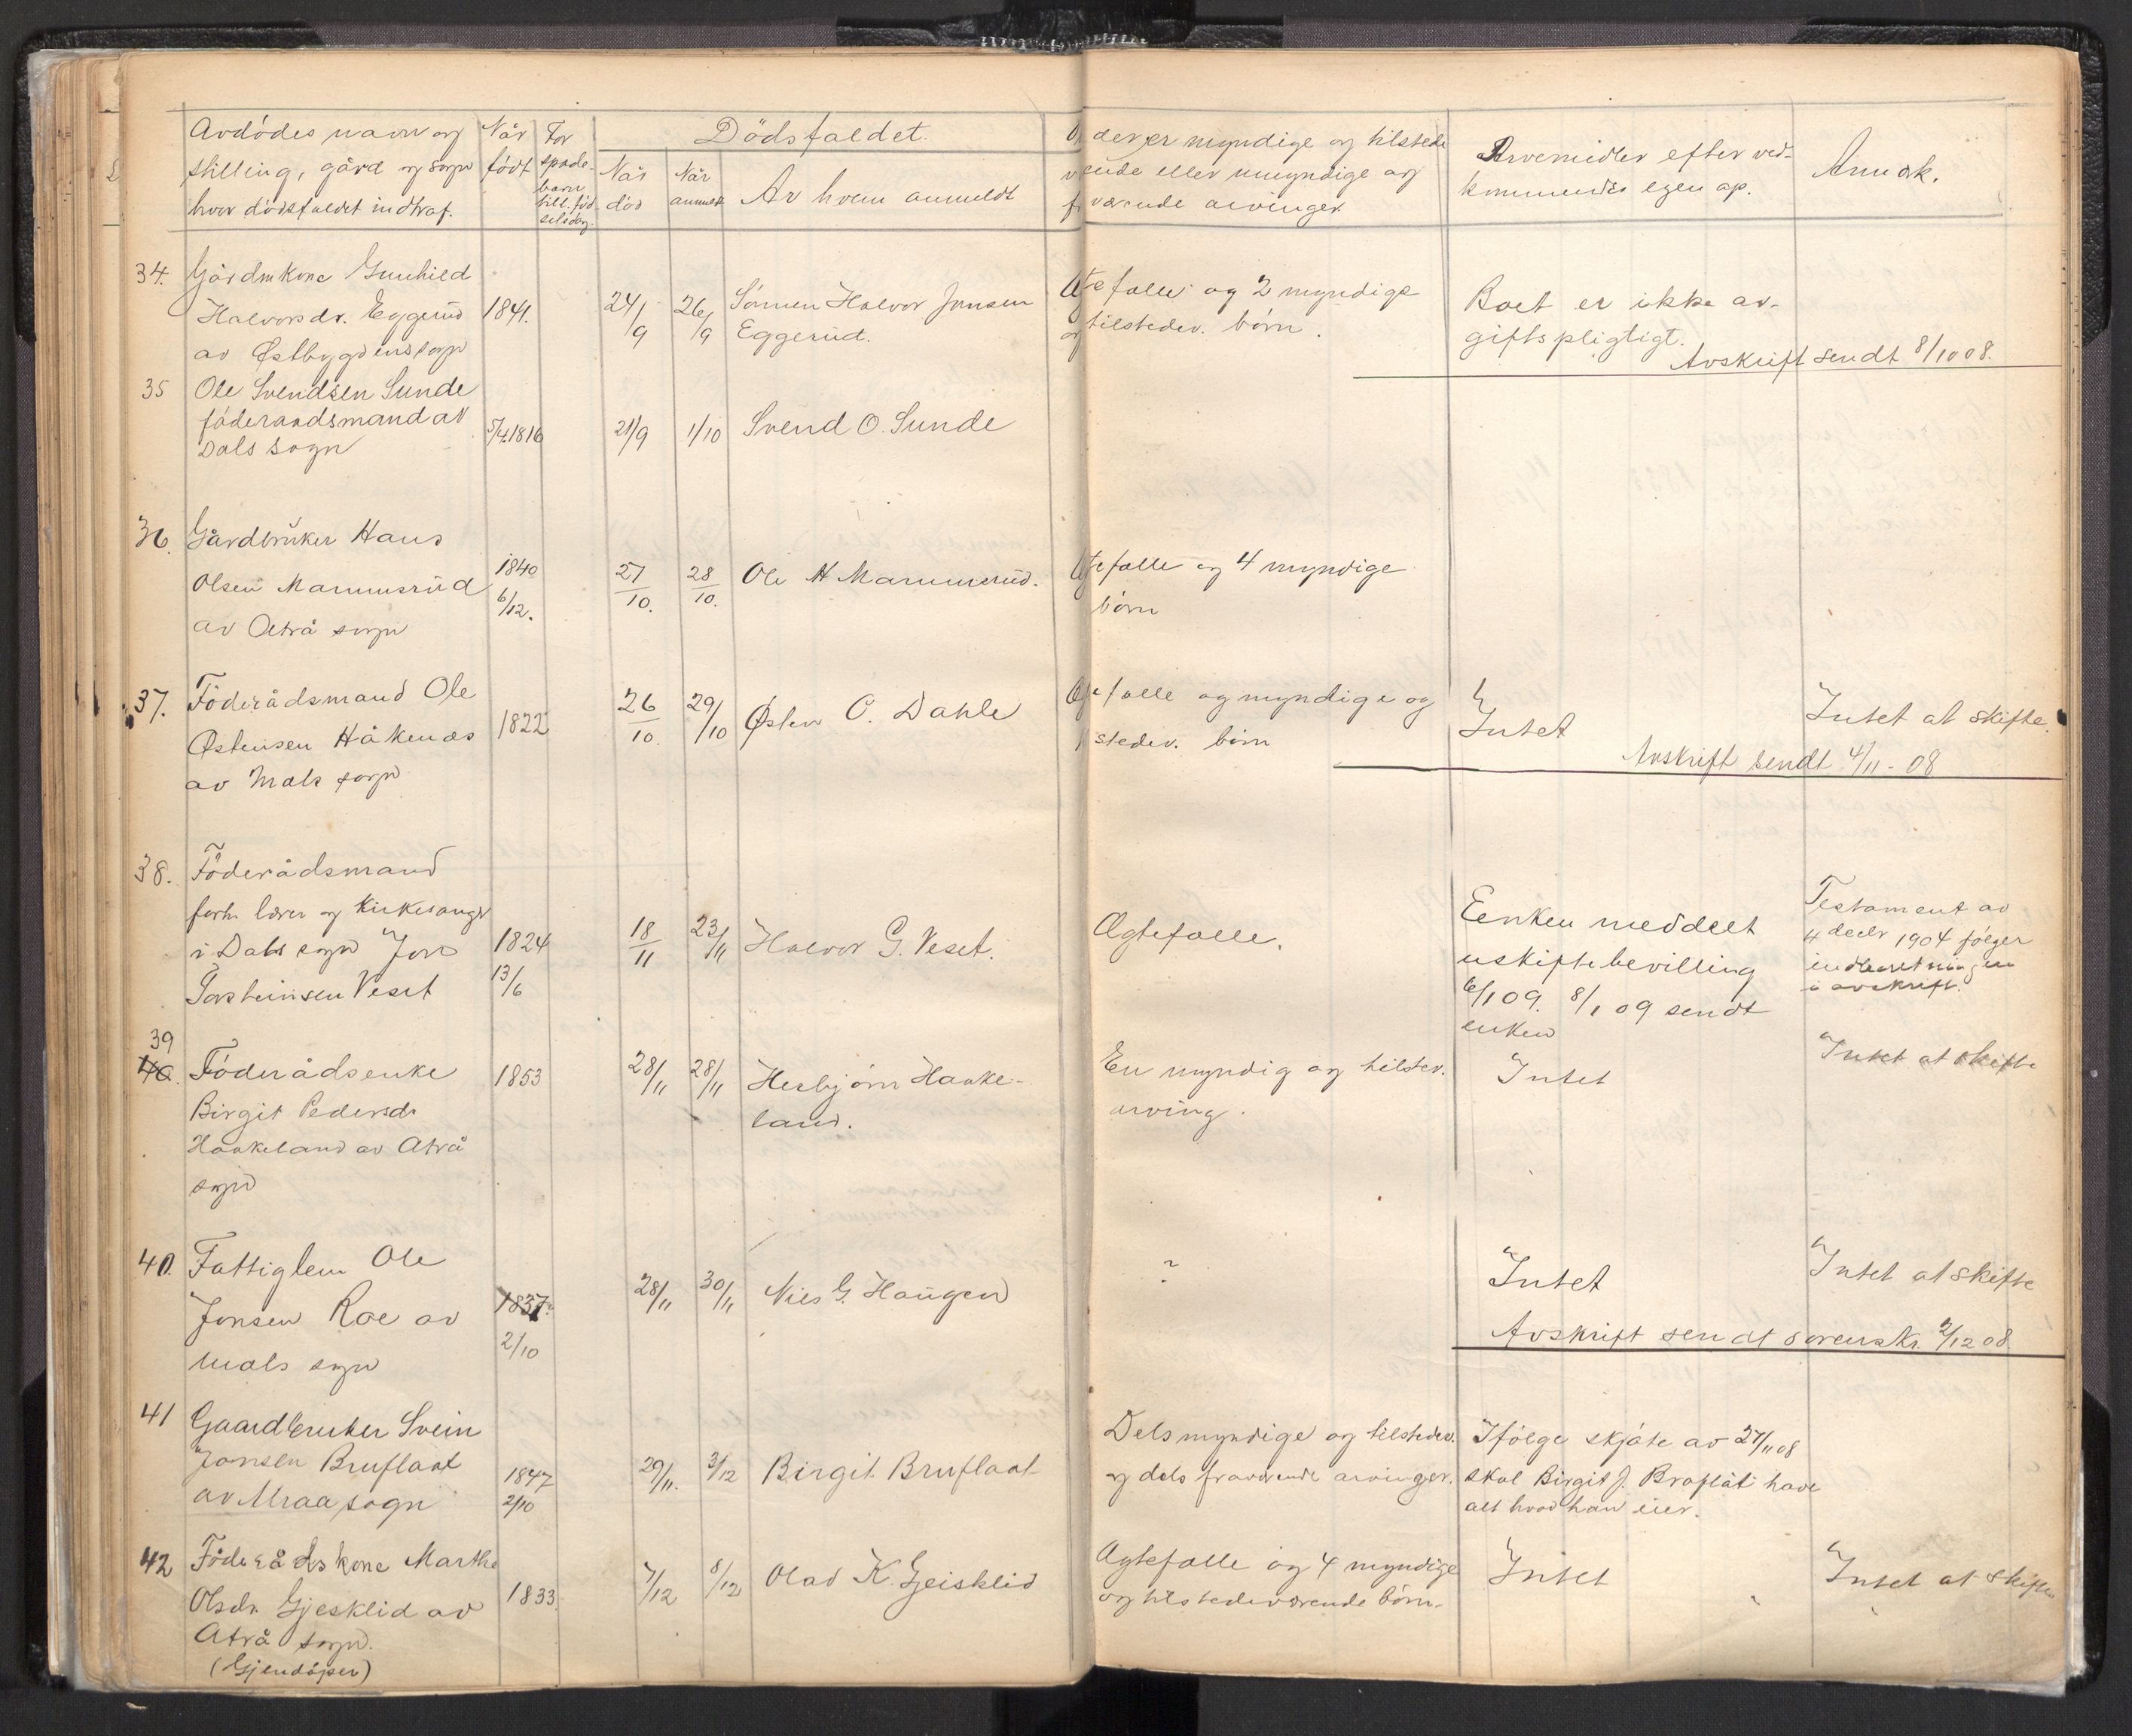 Avdödes navn og
stilling, gård og sogn
hvor dödsfaldet indtraf.
Når
födt
For
spæde-
barn
till. föd-
selsdag.
Dödsfaldet.
Når
död
Når
anmeldt
Av hvem anmeldt
der er myndige og tilstede
ende eller umyndige og
værende arvinger.
Arvemidler efter ved-
kommendes egen op.
Anmerk.
34.
Gårdmkone Gunhild
Halvorsdr. Eggerud
av Østbygdens sogn
1841.
24/9
26/9
Sönnen Halvor Jonsen
Eggerud.
tefælle og 2 myndige
tilstedev. börn.
Boet er ikke av-
giftspligtigt.
Avskrift sendt 8/10 08.
35
Ole Svendsen Sunde
föderaadsmand av
Dals sogn
5/4 1816
21/9
1/10
Svend O. Sunde
36.
Gårdbruker Hans
Olsen Mammsrud
av Atrå sogn
1840
6/12.
27/10.
28/10.
Ole H Mammsrud.
tefælle og 4 myndige
börn
37.
Föderådsmand Ole
Østensen Håkenæs
av Mæls sogn
1822
26/10.
29/10
Østen O. Dahle
tefælle og myndige og
stedev. börn
Intet
Intet at skifte.
Avskrift sendt 4/11 - 08
38.
Föderådsmand
forh. lærer og Kirkesanger
i Dals sogn Jon
Torsteinsen Veset
1824
13/6
18/11
23/11
Halvor G. Veset.
Ægtefælle.
Eenken meddelt
uskiftebevilling
6/1 09. 8/1 09 sendt
enken
Testament av
4 decbr 1904 fölger
indberetningen
i avskrift.
39
40.
Föderådsenke
Birgit Pedersdr
Haakeland av Atrå
sogn
1853
28/11
28/11
Herbjörn Haake-
land.
En myndig og tilstev.
arving.
Intet
Intet at skifte
40.
Fattiglem Ole
Jonsen Roe av
Mæls sogn
1837.
2/10
28/11
30/11
Nils G. Haugen
?
Intet
Intet at skifte
Avskrift sendt sorenskr. 2/12 08
41
Gaardbruker Svein
Jonsen Bruflaat
av Atraa sogn
1847
2/10
29/11.
3/12
Birgit Bruflaat
Dels myndige og tilstedev.
og dels fraværende arvinger.
Ifölge skjöte av 27/11 08
skal Birgit J. Broflåt have
alt hvad han eier.
42
Föderådskone Marthe
Olsdr. Gjesklid av
Atrå sogn.
(Gjendöper)
1833.
7/12
8/12
Olav K. Gjeisklid
Ægtefælle og 4 myndige
og tilstedeværende börn.
Intet
Intet at skifte